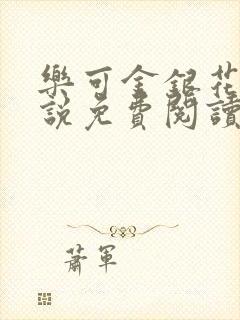 樂可金銀花
說免費閱讀
蕭軍